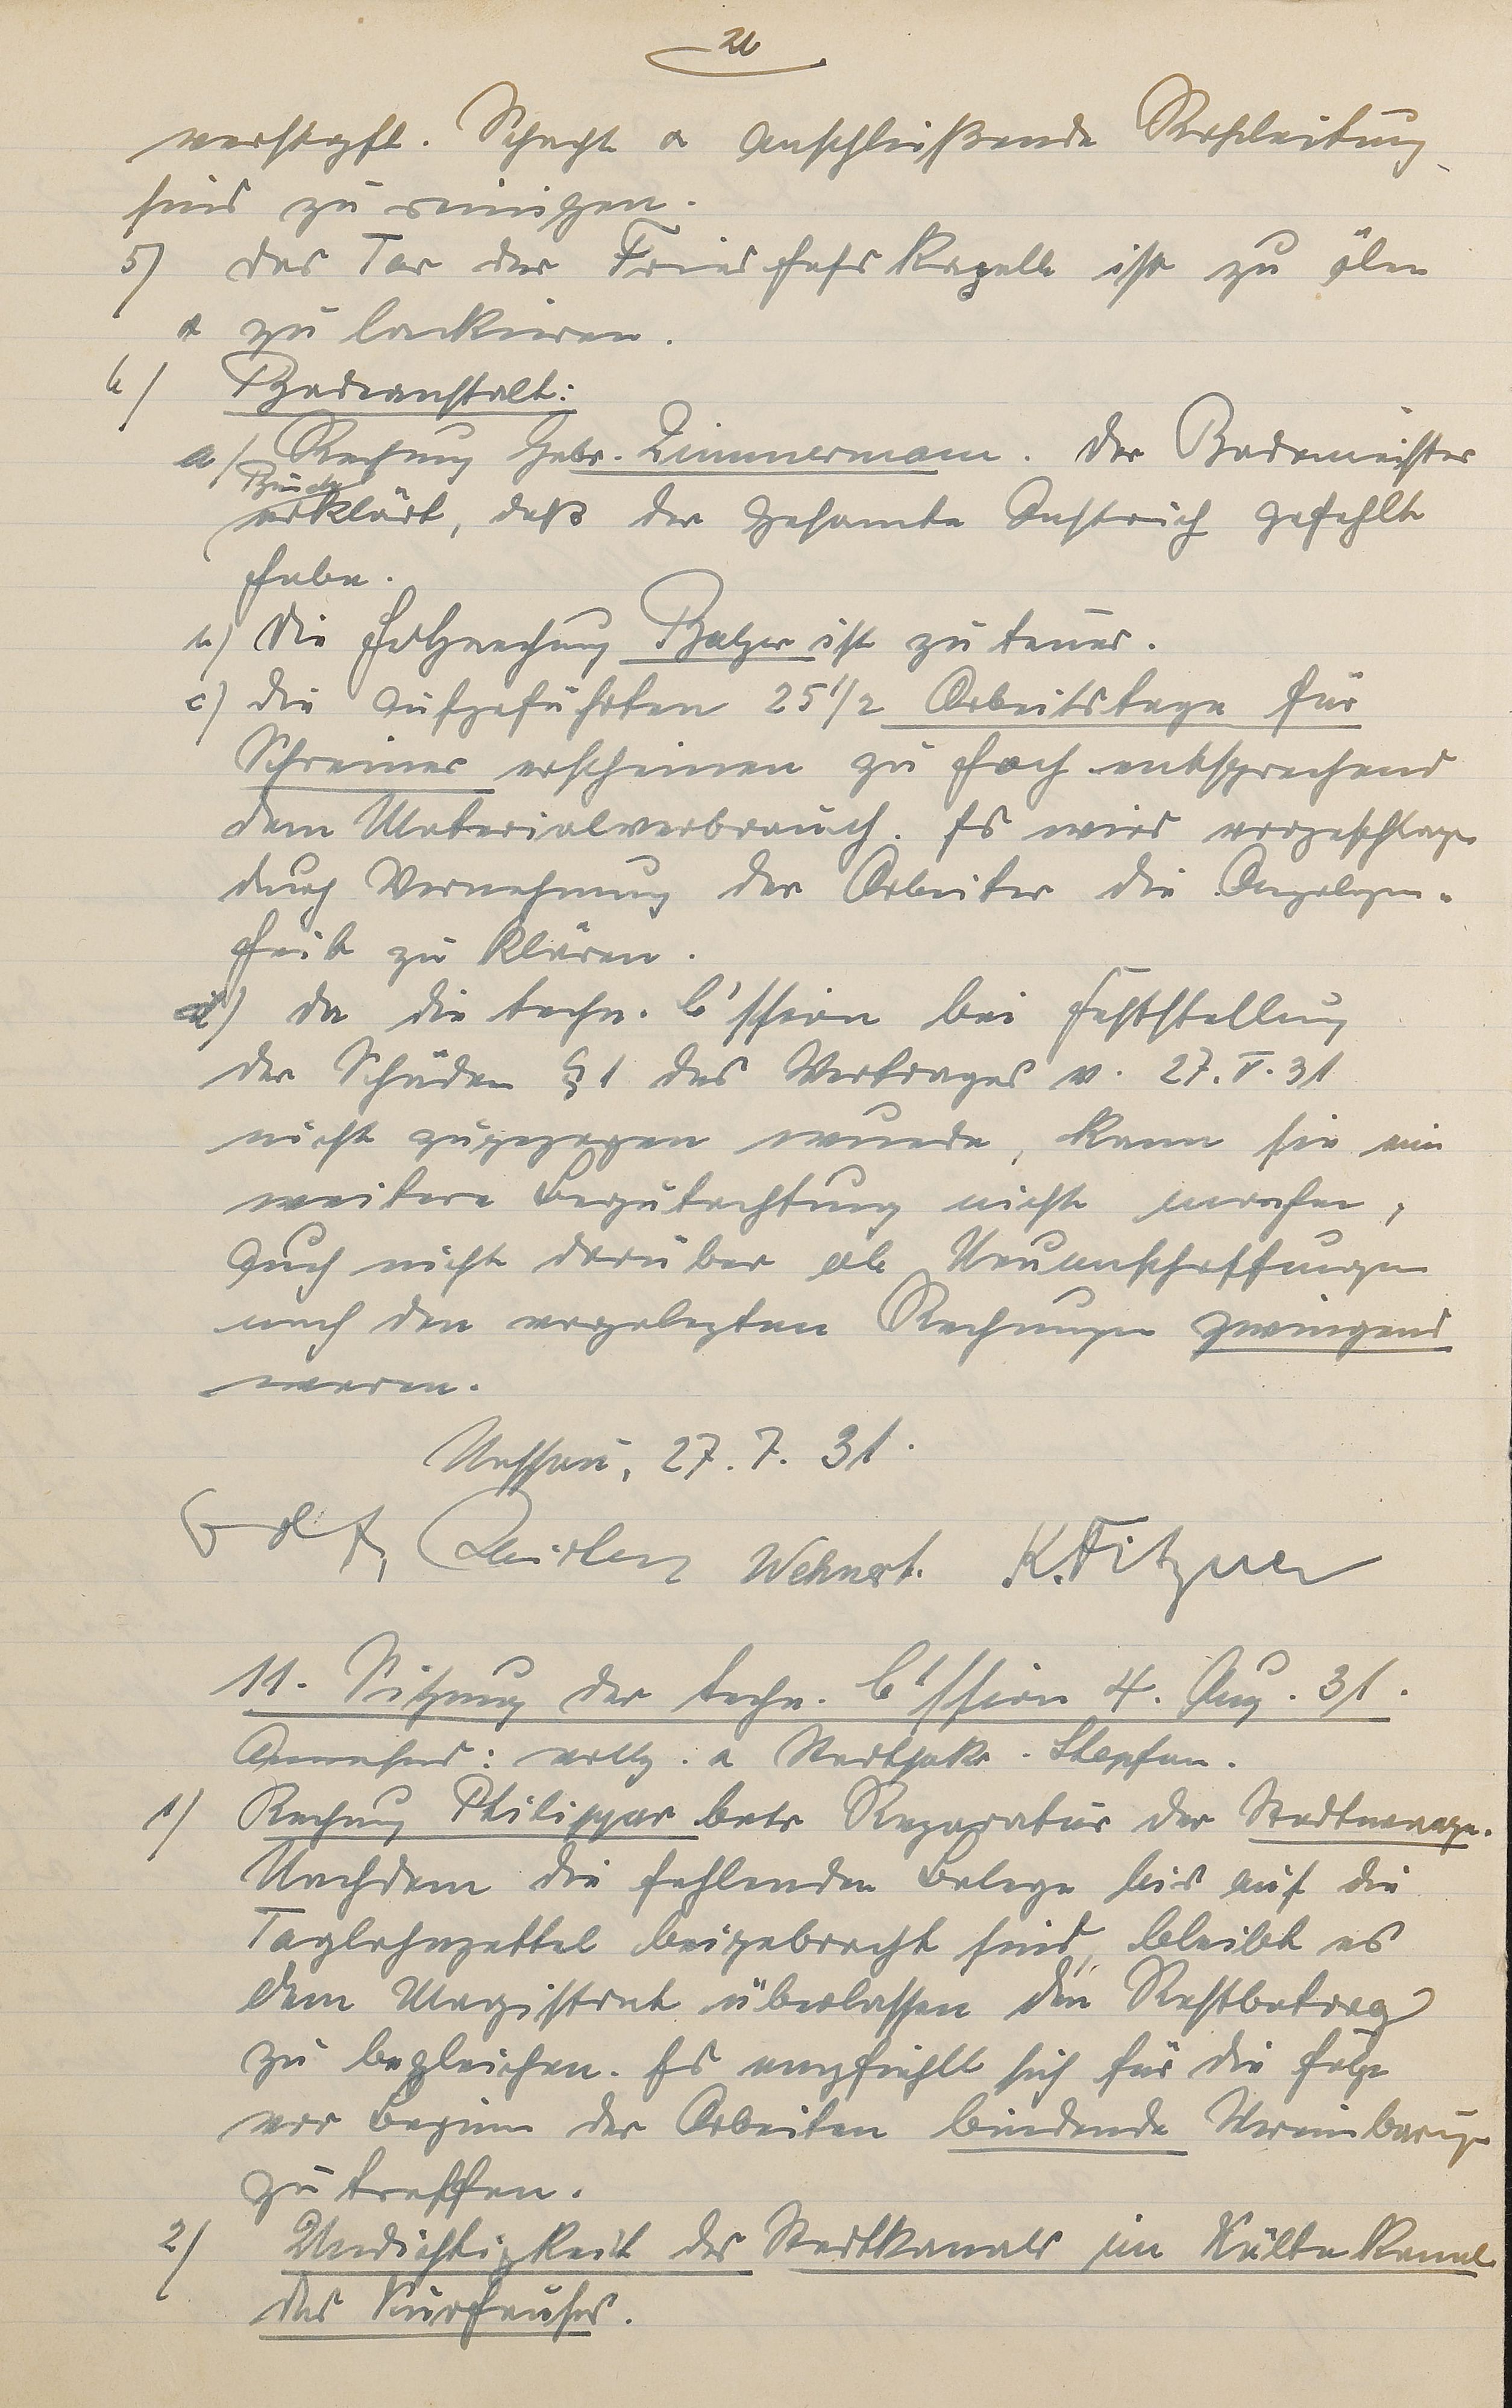 verstopft. Schacht & anschließende Rohrleitung
sind zu reinigen.
5) das Tor der Friedhofskapelle ist zu ölen
& zu lackieren.
6) Badeanstalt:
a) Rechnung Gebr. Zimmermann. Der Bademeister
Buide
erklärt, daß der gesamte Anstrich gefehlt
habe.
b) Die Holzrechnung Balzer ist zu teuer.
c) Die aufgeführten 25 1/2 Arbeitstage für
Schreiner erscheinen zu hoch entsprechend
dem Materialverbrauch. Es wird vorgeschlagen
durch Vernehmung der Arbeiter die Angelegen-
heit zu klären.
d) da die techn. C'ssion bei Feststellung
der Schäden § 1 des Vertrages v. 27.V.31
nicht zugezogen wurde, kann sie eine
weitere Begutachtung nicht machen,
auch nicht darüber ob Neuanschaffungen
nach den vorgelegten Rechnungen zwingend
waren.
Nassau, 27.7.31.
Wehnert. K. Fitzner
11. Sitzung der techn. C'ssion 4. Aug. 31.
Anwesend: vollz. & Stadtsekr. Stephan.
1) Rechnung Philippar betr Reparatur der Stadtwaage.
Nachdem die fehlenden Belege bis auf die
Taglohnzettel beigebracht sind, bleibt es
dem Magistrat überlassen den Restbetrag
zu begleichen. Es empfiehlt sich für die Folge
vor Beginn der Arbeiten bindende Vereinbarungen
zu treffen.
2) Undichtigkeit des Stadtkanals im Kälte Kanal
des Kurhauses.